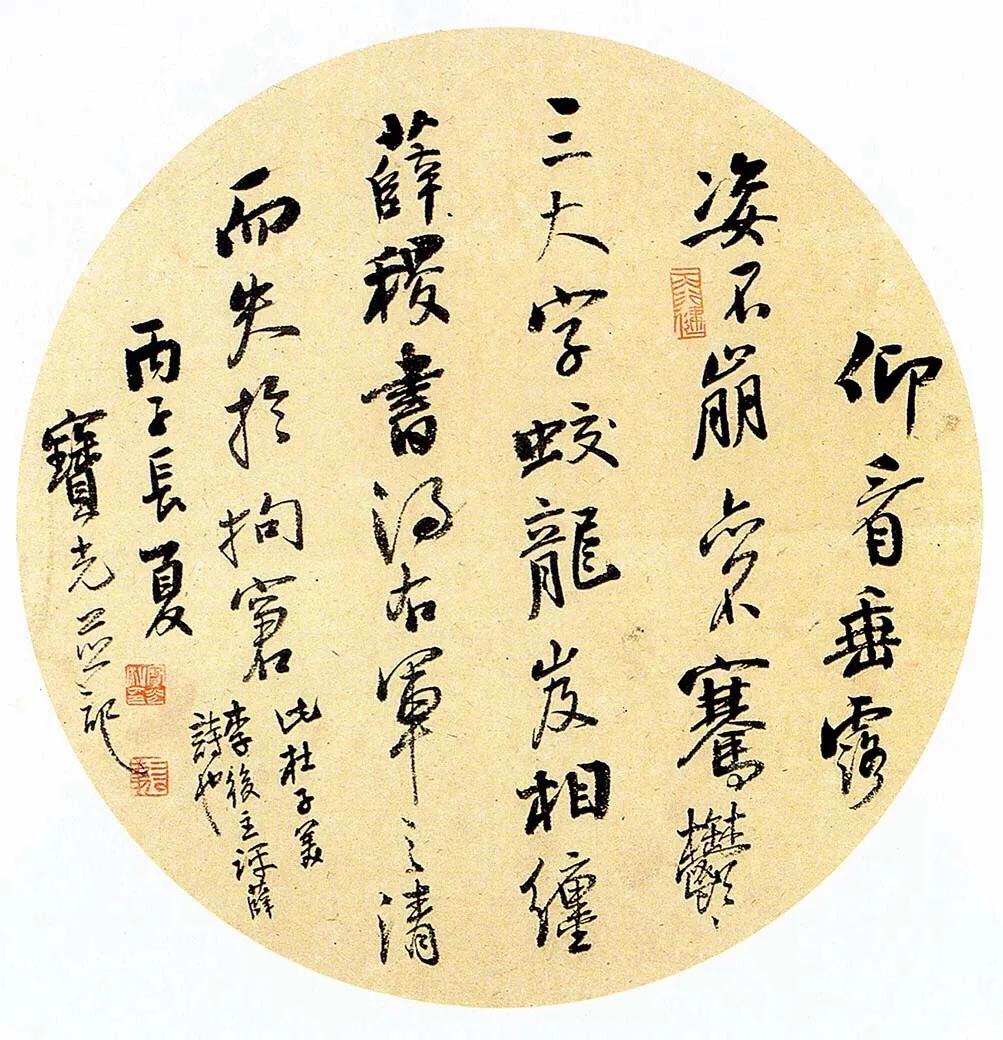 仰看垂露
姿不崩亦不騫鬱〻
天行健
三大字蛟龍岌相纏
薛稷書得右軍之清
而失於拘窘
此杜子美
李後主評薛
詩也
丙子長夏
寶光並記